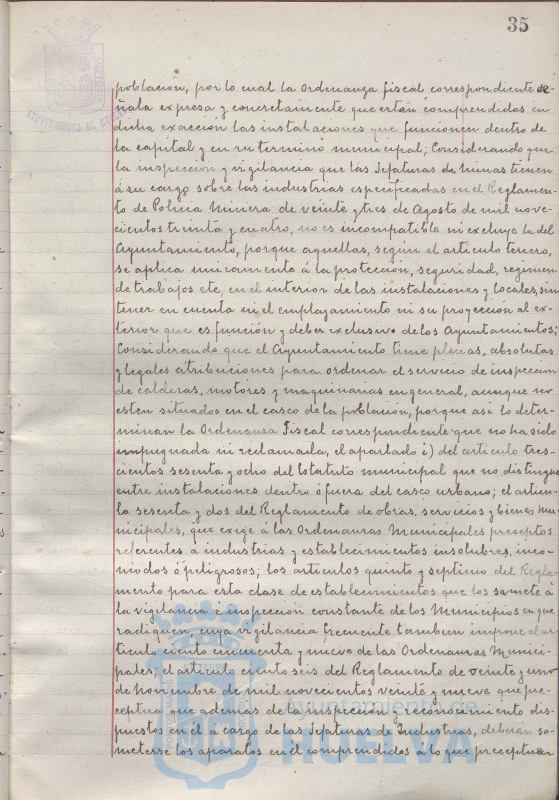 35
AYUNTAMIENTO DE HUELVA
población, por lo cual la Ordenanza fiscal correspondiente se-
ñala expresa y concretamente que están comprendidas en
dicha exacción las instalaciones que funcionen dentro de
la capital y en su término municipal; Considerando que
la inspeccion y vigilancia que las Jefaturas de Minas tienen
á su cargo sobre las industrias especificadas en el Reglamen-
to de Policia Minera de veinte y tres de Agosto de mil nove-
cientos treinta y cuatro, no es incompatible ni excluye la del
Ayuntamiento, porque aquellas, según el artículo tercero,
se aplica unicamente á la protección, seguridad, regimen
de trabajos etc, en el interior de las instalaciones y locales, sin
tener en cuenta ni el emplazamiento ni su proyección al ex-
terior que es función y deber exclusivo de los Ayuntamientos;
Considerando que el Ayuntamiento tiene plenas, absolutas
y legales atribuciones para ordenar el servicio de inspeccion
de calderas, motores y maquinarias en general, aunque no
esten situados en el casco de la poblacion, porque asi lo deter-
minan la Ordenanza Fiscal correspondiente que no ha sido
impugnada ni reclamada, el apartado i) del artículo tres-
cientos sesenta y ocho del Estatuto municipal que no distingue
entre instalaciones dentro ó fuera del casco urbano; el articu-
lo sesenta y dos del Reglamento de obras, servicios y bienes mu-
nicipales, que exige á las Ordenanzas Municipales preceptos
referentes á industrias y establecimientos insalubres, inco-
modos ó peligrosos; los artículos quinto y septimo del Regla-
mento para esta clase de establecimientos que los somete á
la vigilancia e inspección constante de los Municipios en que
radiquen, cuya vigilancia frecuente tambien impone el ar-
tículo ciento cincuenta y nueve de las Ordenanzas Munici-
pales; el artículo ciento seis del Reglamento de veinte y uno
de noviembre de mil novecientos veinte y nueve que pre-
ceptua que ademas de la inspección y reconocimiento dis-
puestos en el á cargo de las Jefaturas de Industrias, deberán so-
meterse los aparatos en el comprendidos á lo que preceptuen
Ayuntamiento de
HUELVA